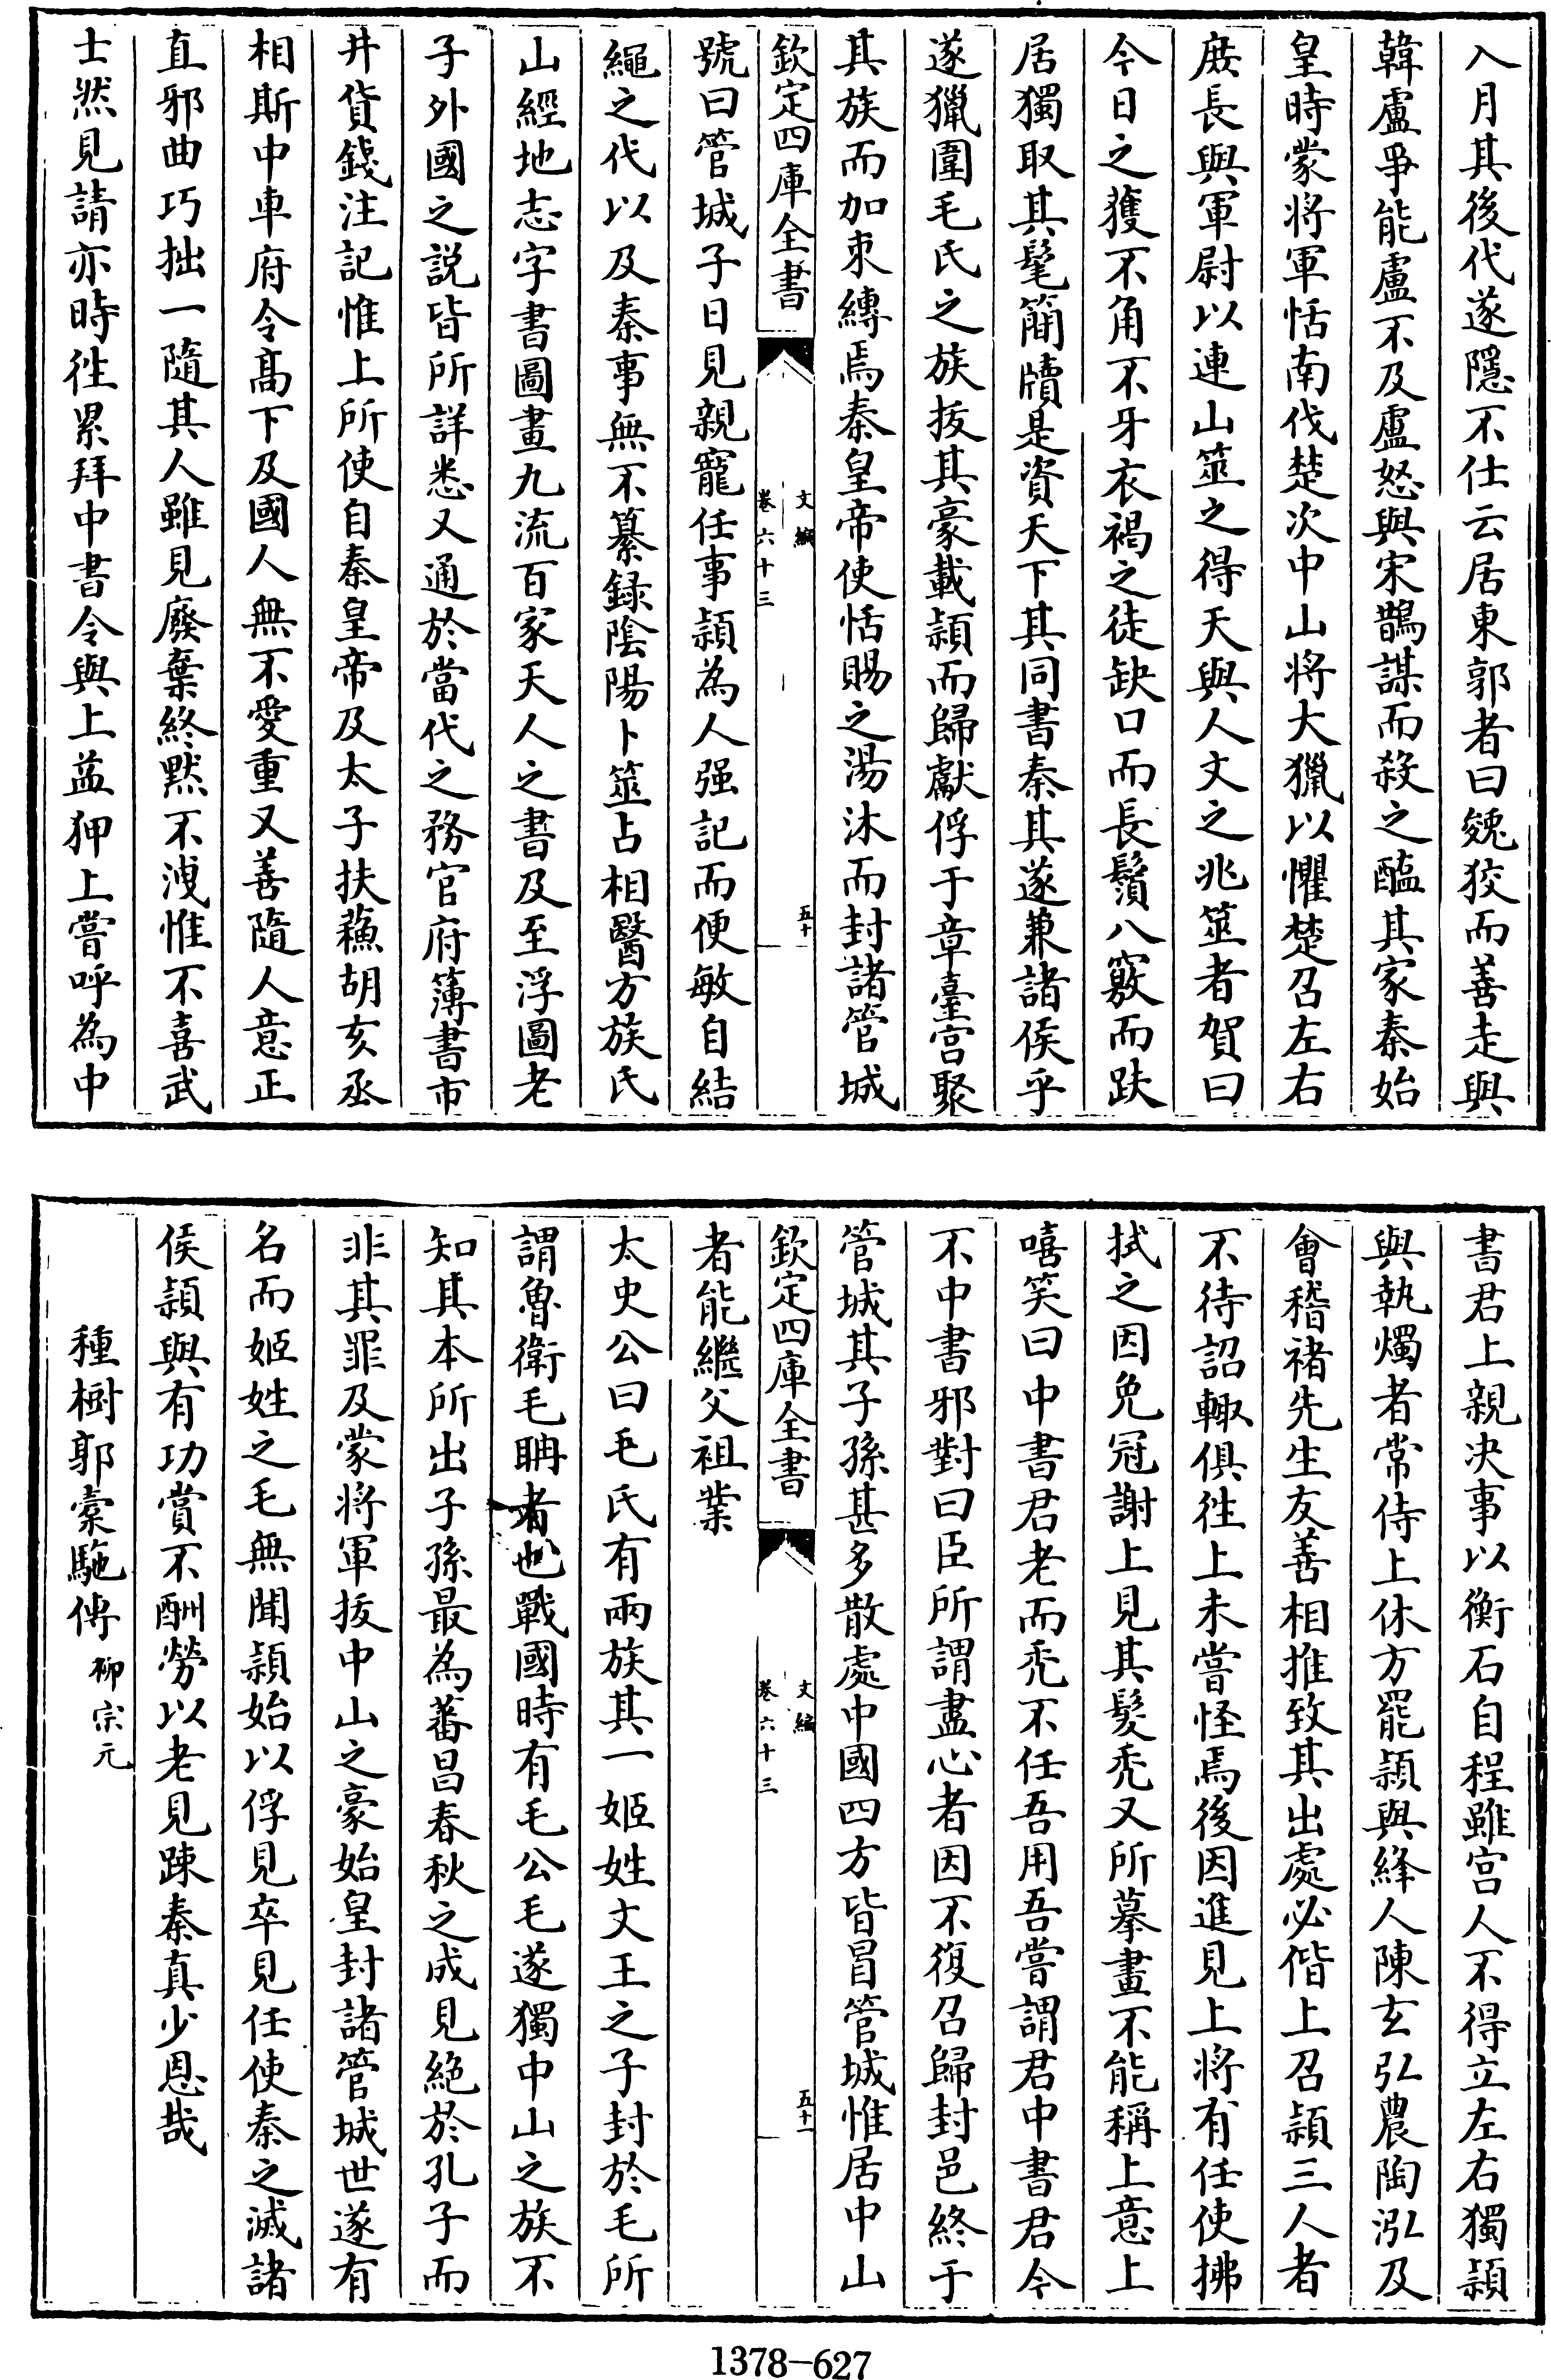 入月其後代遂隱不仕云居東郭者曰㕙狡而善走與
韓盧爭能盧不及盧怒與宋鵲謀而殺之醢其家秦始
皇時蒙將軍恬南伐楚次中山將大獵以懼楚召左右
庶長與軍尉以連山筮之得天與人文之兆筮者賀曰
今日之獲不角不牙衣褐之徒缺口而長鬚八竅而趺
居獨取其髦簡牘是資天下其同書秦其遂兼諸侯乎
遂獵圍毛氏之族拔其豪載頴而歸獻俘于章臺宮聚
其族而加束縛焉秦皇帝使恬賜之湯沐而封諸管城
欽定四庫全書
文編
卷六十三
五十
號曰管城子日見親寵任事頴為人强記而便敏自結
繩之代以及秦事無不纂録陰陽卜筮占相醫方族氏
山經地志字書圖畫九流百家天人之書及至浮圖老
子外國之説皆所詳悉又通於當代之務官府簿書市
井貨錢注記惟上所使自秦皇帝及太子扶蘓胡亥丞
相斯中車府令髙下及國人無不愛重又善隨人意正
直邪曲巧拙一隨其人雖見廢棄終默不洩惟不喜武
士然見請亦時徃累拜中書令與上益狎上嘗呼為中
書君上親决事以衡石自程雖宫人不得立左右獨頴
與執燭者常侍上休方罷頴與絳人陳玄弘農陶泓及
會稽褚先生友善相推致其出處必偕上召頴三人者
不待詔輙俱徃上未嘗怪焉後因進見上將有任使拂
拭之因免冠謝上見其髮秃又所摹畫不能稱上意上
嘻笑曰中書君老而秃不任吾用吾嘗謂君中書君今
不中書邪對曰臣所謂盡心者因不復召歸封邑終于
管城其子孫甚多散處中國四方皆冒管城惟居中山
欽定四庫全書
文編
卷六十三
五十一
者能繼父祖業
太史公曰毛氏有兩族其一姬姓文王之子封於毛所
謂魯衛毛聃者也戰國時有毛公毛遂獨中山之族不
知其本所出子孫最為蕃昌春秋之成見絶於孔子而
非其罪及蒙將軍拔中山之豪始皇封諸管城世遂有
名而姬姓之毛無聞頴始以俘見卒見任使秦之滅諸
侯頴與有功賞不酬勞以老見踈秦真少恩哉
種樹郭槖駞傳柳宗元
1378-627